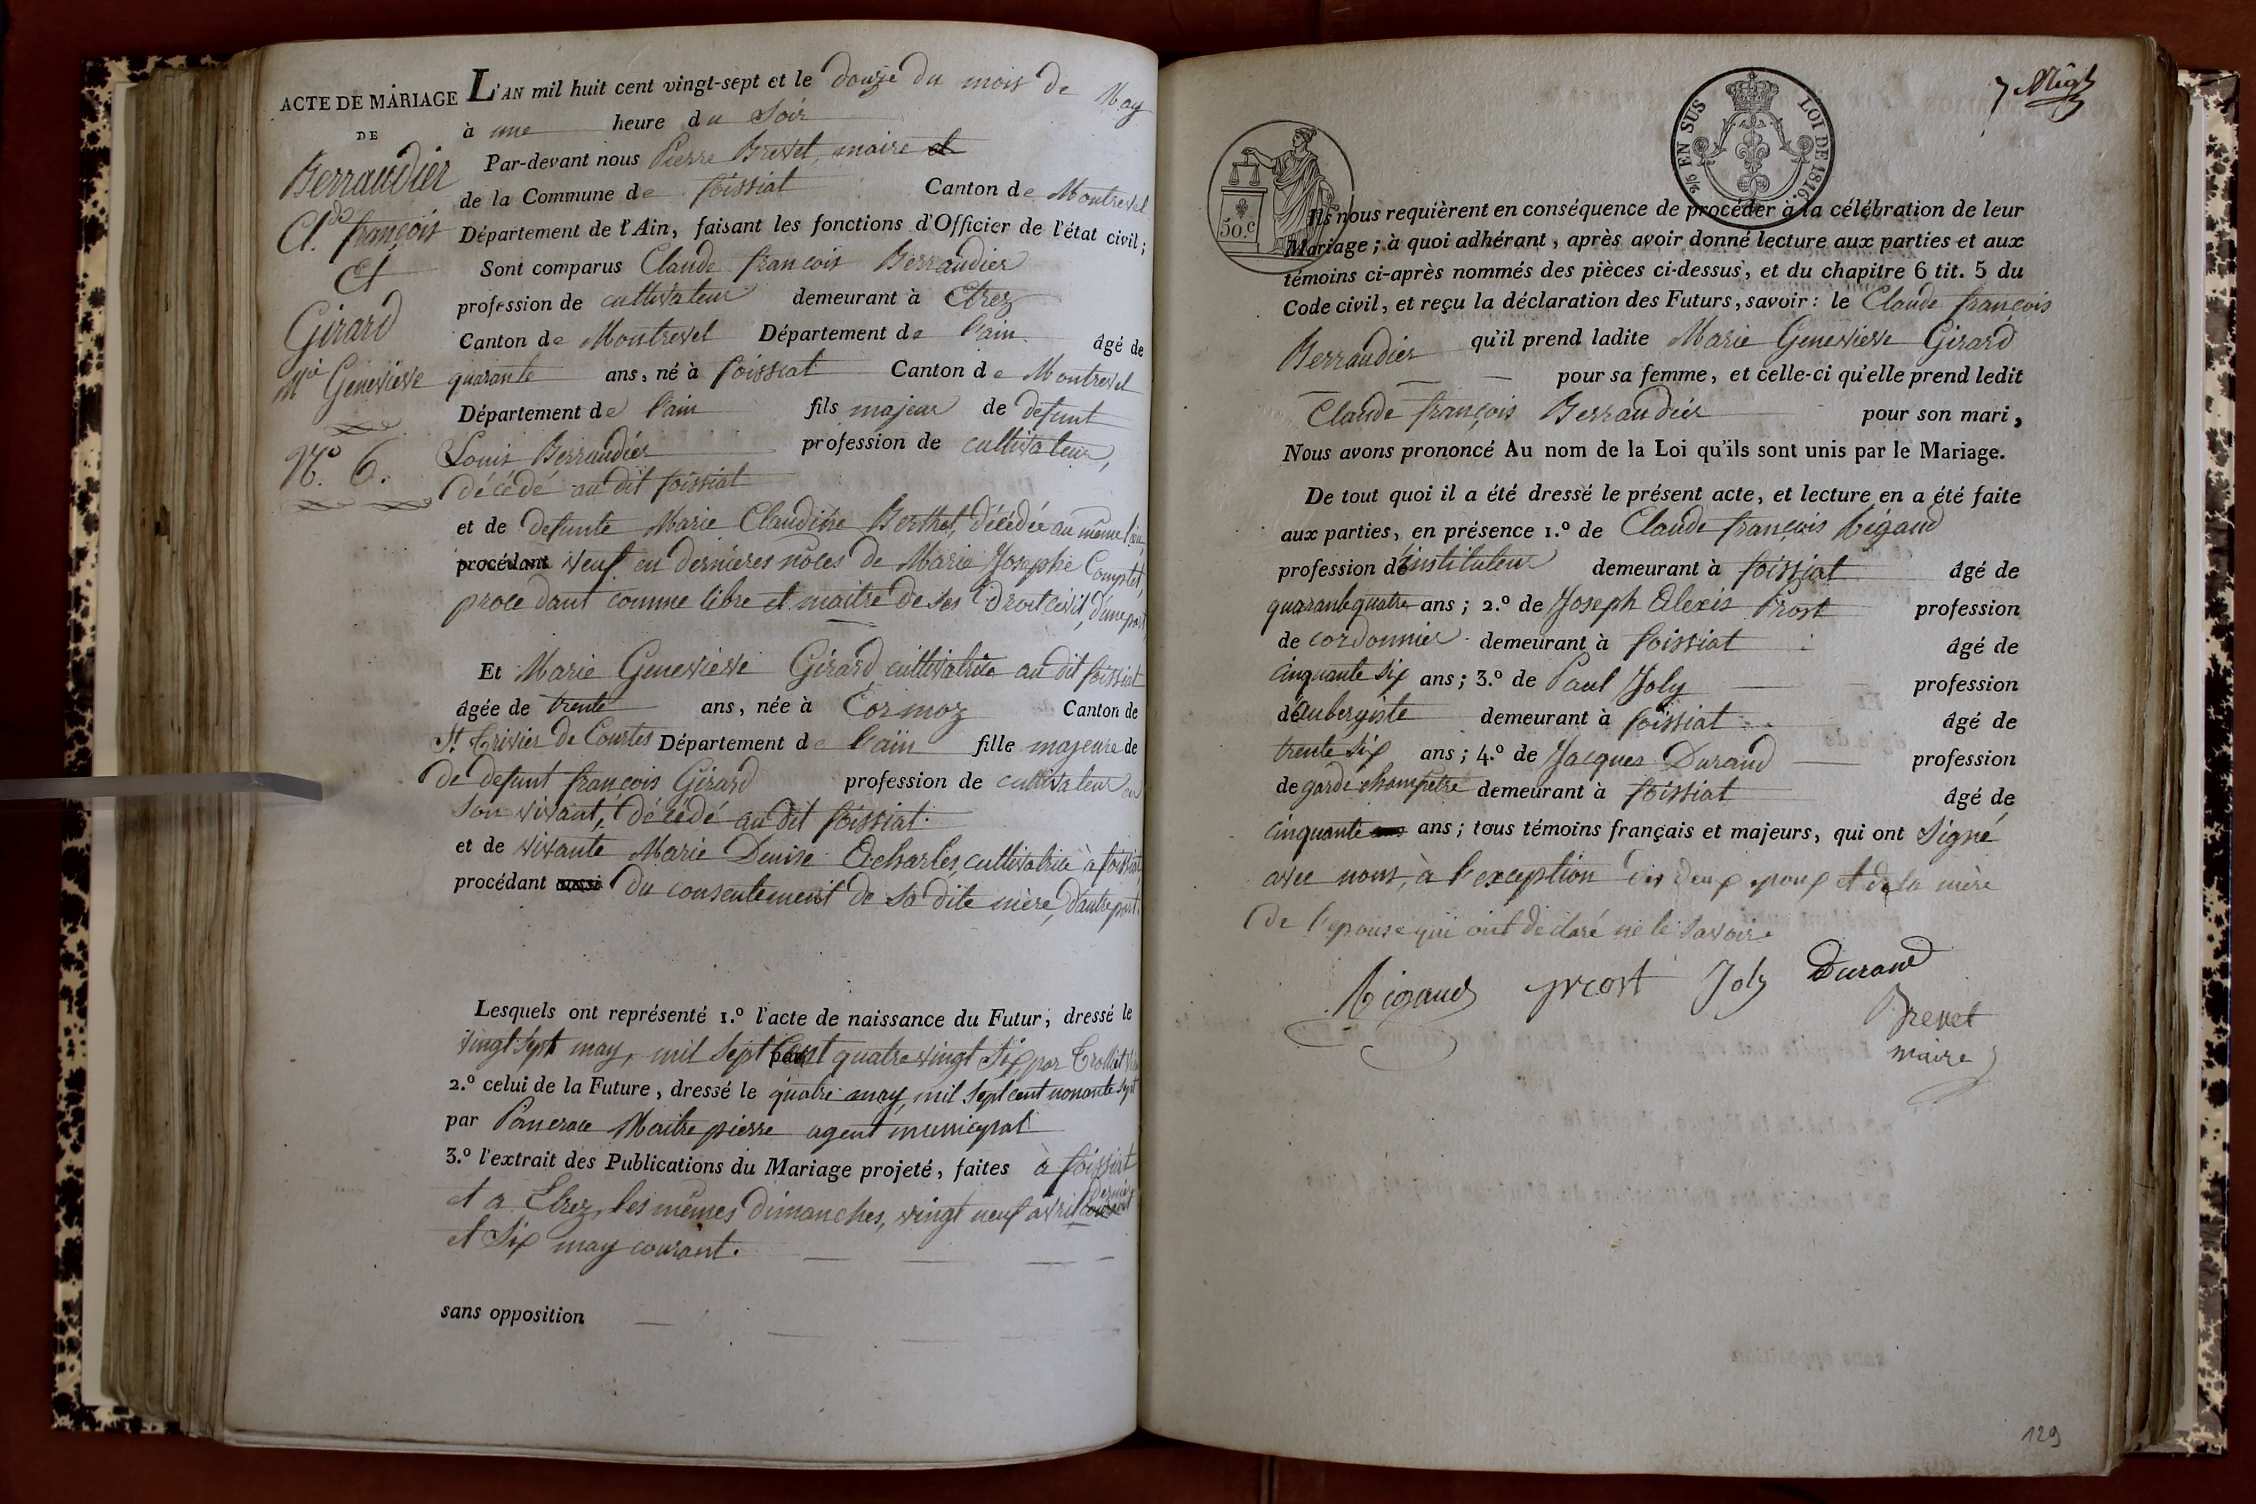 ACTE DE MARIAGE
DE
Berraudier
Cl.de françois
Et
Girard
M.ie Genevieve
N.o 6.
L'AN mil huit cent vingt-sept et le douze du mois de May
à une heure du Soir
Par-devant nous Pierre Brevet, maire et
de la Commune de foissiat Canton de Montrevel
Département de l'Ain, faisant les fonctions d'Officier de l'état civil;
Sont comparus Claude françois Berraudier
profession de cultivateur demeurant à Etrez
Canton de Montrevel Département de l'ain âgé de
quarante ans, né à foissiat Canton de Montrevel
Département de l'ain fils majeur de defunt
Louis Berraudier profession de cultivateur,
décédé au dit foissiat
et de defunte Marie Claudine Berthet, décédée au même lieu
procédant veuf en dernières nôces de Marie Josephe Comptet,
procedant comme libre et maitre de ses droit civil, d'une part
Et Marie Genevieve Girard cultivatrice au dit foissiat
âgée de trente ans, née à Cormoz Canton de
St. Trivier de Courtes Département de l'ain fille majeure de
de defunt françois Girard profession de cultivateur en
son vivant, décédé au dit foissiat.
et de vivante Marie Denise Acharles, cultivatrice à foissiat
procédant du consentement de sa dite mère, d'autre part.
Lesquels ont représenté 1.o l'acte de naissance du Futur, dressé le
vingt sept may, mil sept cent quatre vingt six, par Trollict
2.o celui de la Future, dressé le quatre may, mil sept cent nonante sept
par Pancrace Maitrepierre agent municipal
3.o l'extrait des Publications du Mariage projeté, faites à foissiat
et a Etrez, les mêmes Dimanches, vingt neuf avril dernier
et six may courant.
sans opposition
50.c
25/ EN SUS LOI DE 1816.
Ils nous requièrent en conséquence de procéder à la célébration de leur
Mariage; à quoi adhérant, après avoir donné lecture aux parties et aux
témoins ci-après nommés des pièces ci-dessus, et du chapitre 6 tit. 5 du
Code civil, et reçu la déclaration des Futurs, savoir: le Claude françois
Berraudier qu'il prend ladite Marie Genevieve Girard
pour sa femme, et celle-ci qu'elle prend ledit
Claude françois Berraudier pour son mari,
Nous avons prononcé Au nom de la Loi qu'ils sont unis par le Mariage.
De tout quoi il a été dressé le présent acte, et lecture en a été faite
aux parties, en présence 1.o de Claude françois Rigaud
profession d'instituteur demeurant à foissiat âgé de
quarante quatre ans; 2.o de Joseph Alexis Prost profession
de cordonnier demeurant à foissiat âgé de
cinquante six ans; 3.o de Paul Joly profession
d'aubergiste demeurant à foissiat âgé de
trente six ans; 4.o de Jacques Durand profession
de garde champetre demeurant à foissiat âgé de
cinquante ans; tous témoins français et majeurs, qui ont signé
avec nous, à l'exception des deux epoux et de la mère
de l'epouse qui ont déclaré ne le savoir.
Rigaud prost Joly Durand
Brevet
maire
129